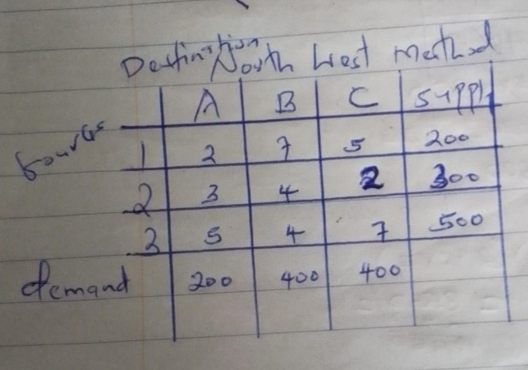 Destination
North West Method
A B C Supply
Sources
1 2 7 5 200
2 3 4 2 300
3 5 4 7 500
demand 200 400 400